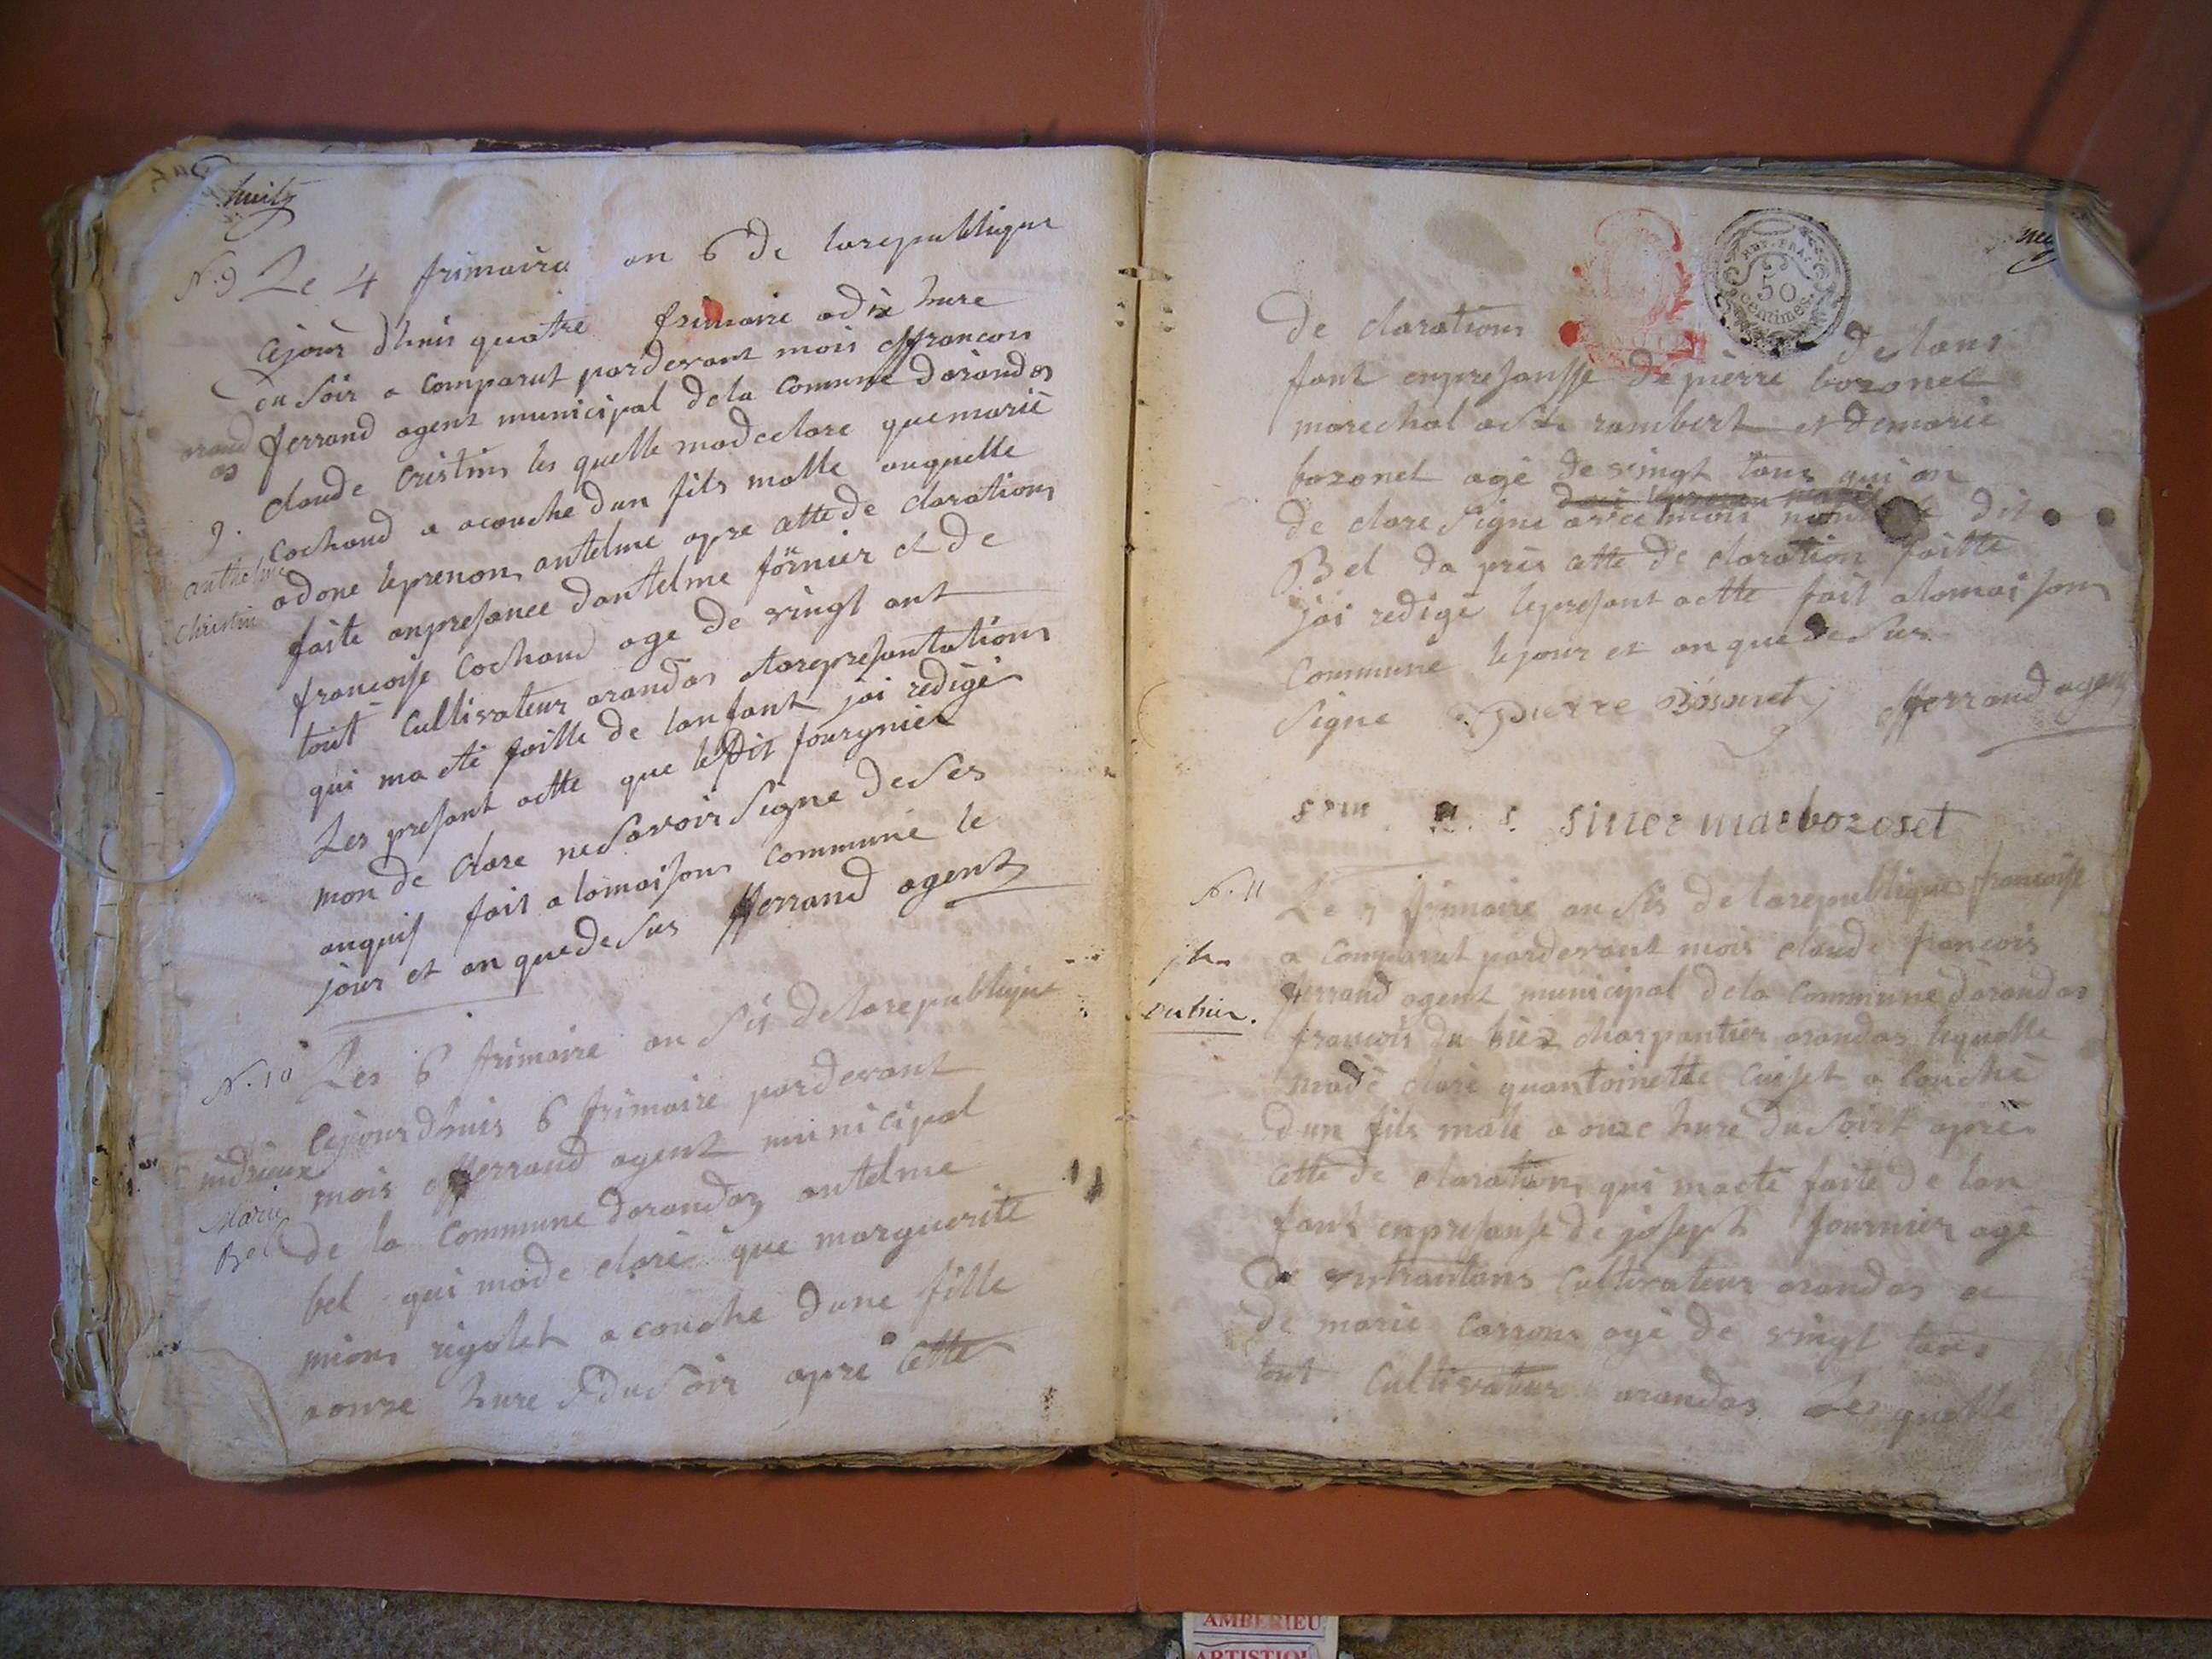 huits
N. 9 Le 4 frimaire an 6 de larepublique
Cejour dhuis quatre frimaire adix hure
du soir a comparut pardevant mois ffrancois
arand
as
ferrand agent municipal dela comune darandas
claude cristin les quelle madeclare quemarie
9.
cochand a acouche dun fils malle auquelle
anthelme
christin
adone leprenon antelme apre cette de claration
faite anpresance dantelme förnier et de
francoise cochand age de vingt ant
tout cultivateur arandas etarepresantation
qui ma ete faitte de lanfant jai redige
Les presant actte que ledit fourgnier
mon de clare nesavoir signe deses
anquis fait alamaison commune le
jour et an quedesus fferrand agent
N. 10 Les 6 frimaire an sis delarepublique
Cejourdhuis 6 frimaire pardevant
indrieux
mois fferrand agent municipal
Marie
Bel
de la commune darandas antelme
bel qui made clare que marguerite
mion rigolet a couche dune fille
aonze hure du soir apre cette
REP. FRA.
50
centimes
de claration delans
fant enpresansse de pierre bozonet
marechal a st rambert et demarie
bozonet age de vingt tans qui on
de clare signe avec mois dit
Bel da pres cette de claration faitte
jai redige lepresant actte fait alamaison
commune lejour et an que desus
signe pierre Bosonet fferrand agent
siner mar bozoset
N. 11
Le 7 frimaire an sis de larepublique francoise
a comparut pardevant mois claude francois
jh
dubier.
fferrand agent municipal dela commune darandas
francois du biez charpantier arandas lequelle
made clare quantoinette cuiset a couche
dun fils male a onze hure du soirt apre
cette de claration qui maete faite de lan
fant enpresanse de joseph fournier age
de vintrantans cultivateur arandas et
de marie carron age de vingt tans
tout cultivateur arandas Les quelle
AMBERIEU
ARTISTIQU